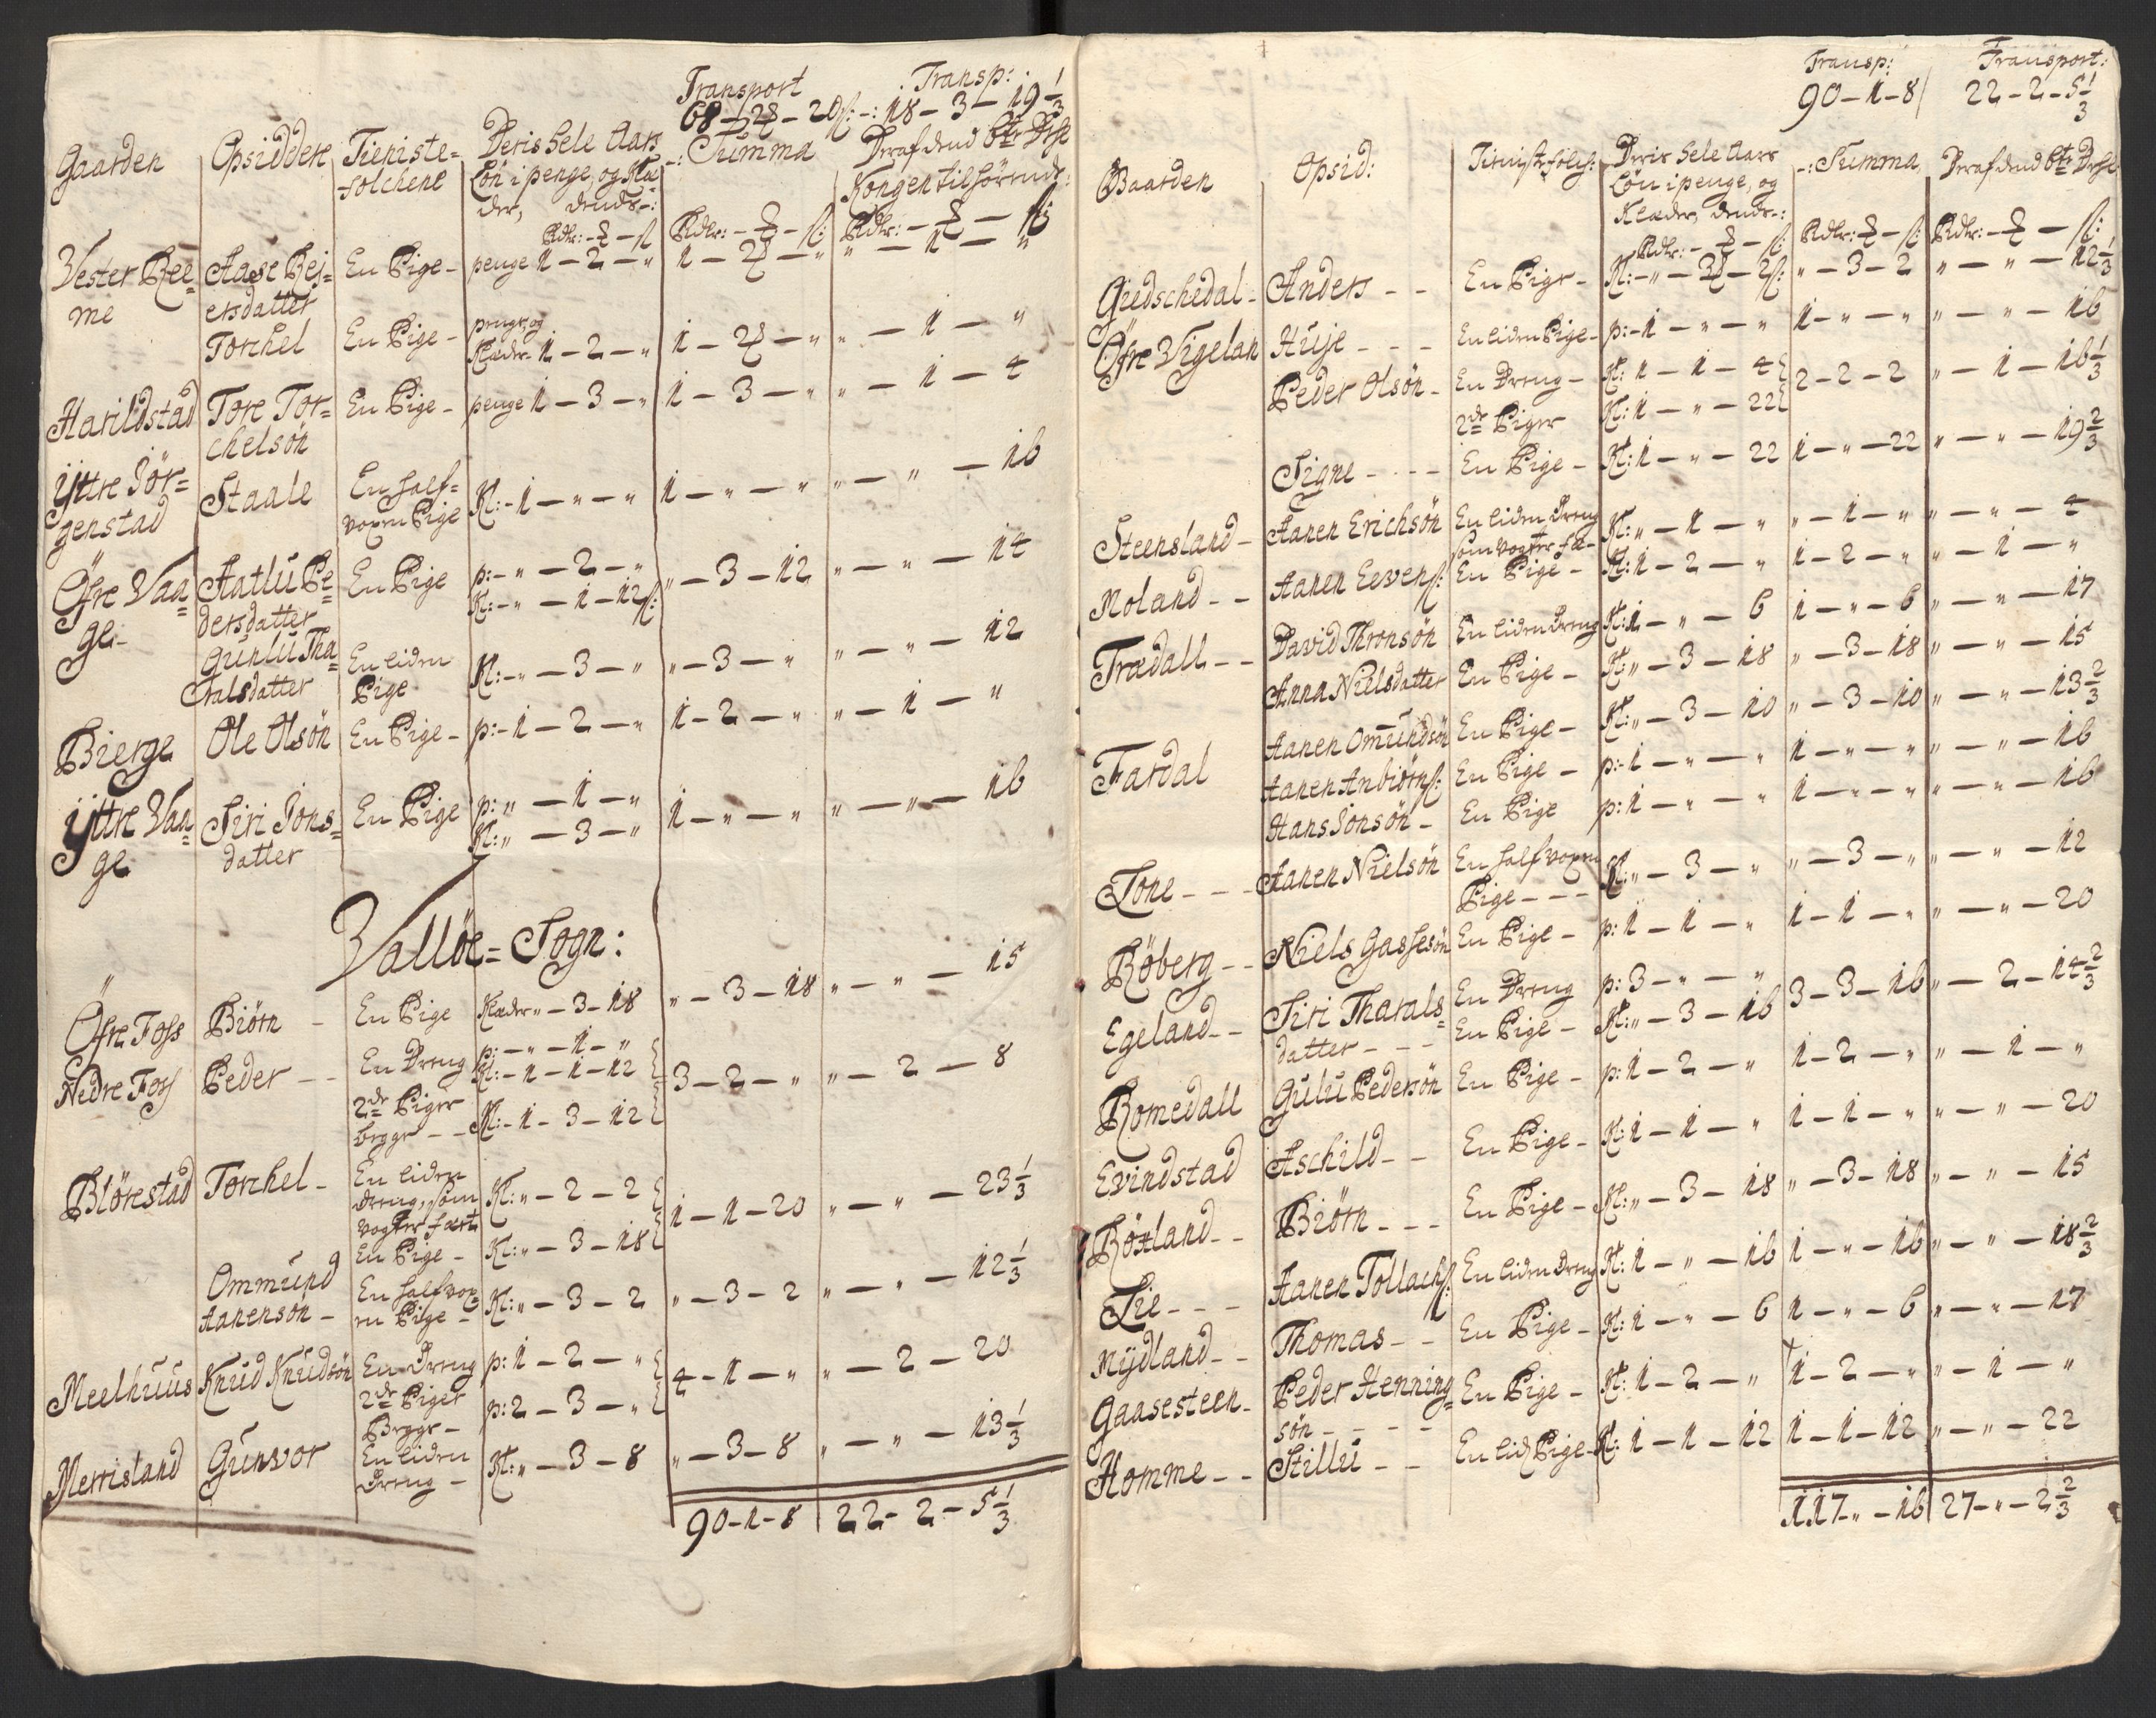 Transport Transp:
68 – 2 – 20 ß: –: 18 – 3 – 19 1/3
Gaarden Opsiddere Tieniste= Deris hele Aars –: Summa Deraf dend 6te Deel
folchene Løn i penge, og Klæ= Kongen tilhørende:
der, dends –:
Rdlr: – – ß Rdlr: – – ß: Rdlr: – – ß
Vester Ree= Aase Rej= En Pige – penge 1 – 2 – „ 1 – 2 – „ „ – 1 – „
me ersdatter
Torchel En Pige – penge, og
Klæder 1 – 2 – „ 1 – 2 – „ „ – 1 – „
Harildstad Tore Tor= En Pige – penge 1 – 3 – „ 1 – 3 – „ „ – 1 – 4
chelsön
Yttre Jör= Staale En half= Kl: – 1 – „ – „ 1 – „ – „ „ – „ – 16
genstad voxen Pige
Öfre Vaa= Aatlu Pe= En Pige p: – „ – 2 – „
ge – dersdatter Kl: – „ – 1 – 12 ß: „ – 3 – 12 „ – „ – 14
Gunlu Tha= En liden Kl: – „ – 3 – „ „ – 3 – „ „ – „ – 12
ralsdatter Pige
Bierge Ole Olsön En Pige – p: – 1 – 2 – „ 1 – 2 – „ „ – 1 – „
Yttre Vaa= Siri Jons= En Pige p: „ – 1 – „
ge datter Kl: „ – 3 – „ 1 – „ – „ „ – „ – 16
Vallöe = Sogn:
Öfre Foss Biörn – En Pige Klæder „ – 3 – 18 „ – 3 – 18 „ – „ – 15
Nedre Foss Peder – – En Dreng p: – „ – 1 – „
Kl: – 1 – 1 – 12 3 – 2 – „ „ – 2 – 8
2de Piger
begge – – Kl: – 1 – 3 – 12
Blörestad Torchel – En liden
dreng, som Kl: „ – 2 – 2
vogter fæet 1 – 1 – 20 „ – „ – 23 1/3
En Pige – Kl: „ – 3 – 18
Ommund En half vox=
Aanensön – en Pige – Kl: „ – 3 – 2 „ – 3 – 2 „ – „ – 12 1/3
Meelhuus Knud Knudsön En Dreng p: 1 – 2 – „ 4 – 1 – „ „ – 2 – 20
2de Piger
Begge – p: 2 – 3 – „
Merrisland Gunvor En liden
Dreng – Kl: „ – 3 – 8 „ – 3 – 8 „ – „ – 13 1/3
90 – 1 – 8 22 – 2 – 5 1/3
Transp: Transport:
90 – 1 – 8 22 – 2 – 5 1/3
Gaarden Opsid: Tienistefolch: Deris hele Aars –: Summa Deraf dend 6te Deel
Løn i penge, og
Klæder, dends –:
Rdlr: – – ß: Rdlr: – ß: Rdlr: – – ß:
Giedschedal – Anders – – En Pige – Kl: – „ – 3 – 2 ß: „ – 3 – 2 „ – „ – 12 1/3
Öfre Vigelan Huje – – – En liden Pige – p: – 1 – „ – „ 1 – „ – „ „ – „ – 16
Peder Olsön – En Dreng – Kl: 1 – 1 – 4 2 – 2 – 2 „ – 1 – 16 1/3
2de Piger Kl: 1 – „ – 22
Signe – – – – En Pige – Kl: 1 – „ – 22 1 – „ – 22 „ – „ – 19 2/3
Steensland – Aanen Erichsön En liden Dreng Kl: „ – 1 – „ „ – 1 – „ „ – „ – 4
som vogter fæ –
Moland – – Aanen Eevens: En Pige – Kl: 1 – 2 – „ 1 – 2 – „ „ – 1 – „
Trædall – – David Thronsön En liden Dreng Kl: 1 – „ – 6 1 – „ – 6 „ – „ – 17
Anna Nielsdatter En Pige – Kl: „ – 3 – 18 „ – 3 – 18 „ – „ – 15
Fardal Aanen Omundsön En Pige – Kl: „ – 3 – 10 „ – 3 – 10 „ – „ – 13 2/3
Aanen Anbiörns: En Pige – p: 1 – „ – „ 1 – „ – „ „ – „ – 16
Hans Jonsön – En Pige p: 1 – „ – „ 1 – „ – „ „ – „ – 16
Tone – – – Aanen Nielsön En half voxen Kl: „ – 3 – „ „ – 3 – „ „ – „ – 12
Pige – – –
Röberg – – Niels Gassesön En Pige – p: 1 – 1 – „ 1 – 1 – „ „ – „ – 20
Egeland – – Siri Tharals= En Dreng p: 3 – „ – „ 3 – 3 – 16 „ – 2 – 14 2/3
datter – – – En Pige – Kl: „ – 3 – 16
Romedall Gulu Pedersön En Pige – p: 1 – 2 – „ 1 – 2 – „ „ – 1 – „
Evindstad Aschild – – En Pige – Kl: 1 – 1 – „ 1 – 1 – „ „ – „ – 20
Böxland – – Biörn – – – En Pige – Kl: „ – 3 – 18 „ – 3 – 18 „ – „ – 15
Lie – – – Aanen Tollachs: En liden Dreng Kl: 1 – „ – 16 1 – „ – 16 „ – „ – 18 2/3
Mydland – – Thomas – – En Pige – Kl: 1 – „ – 6 1 – „ – 6 „ – „ – 17
Gaasesteen – Peder Henning= En Pige – Kl: 1 – 2 – „ 1 – 2 – „ „ – 1 – „
sön – – – –
Homme – – Stillu – – En lid Pige – Kl: 1 – 1 – 12 1 – 1 – 12 „ – „ – 22
117 – „ – 16 27 – „ – 2 2/3